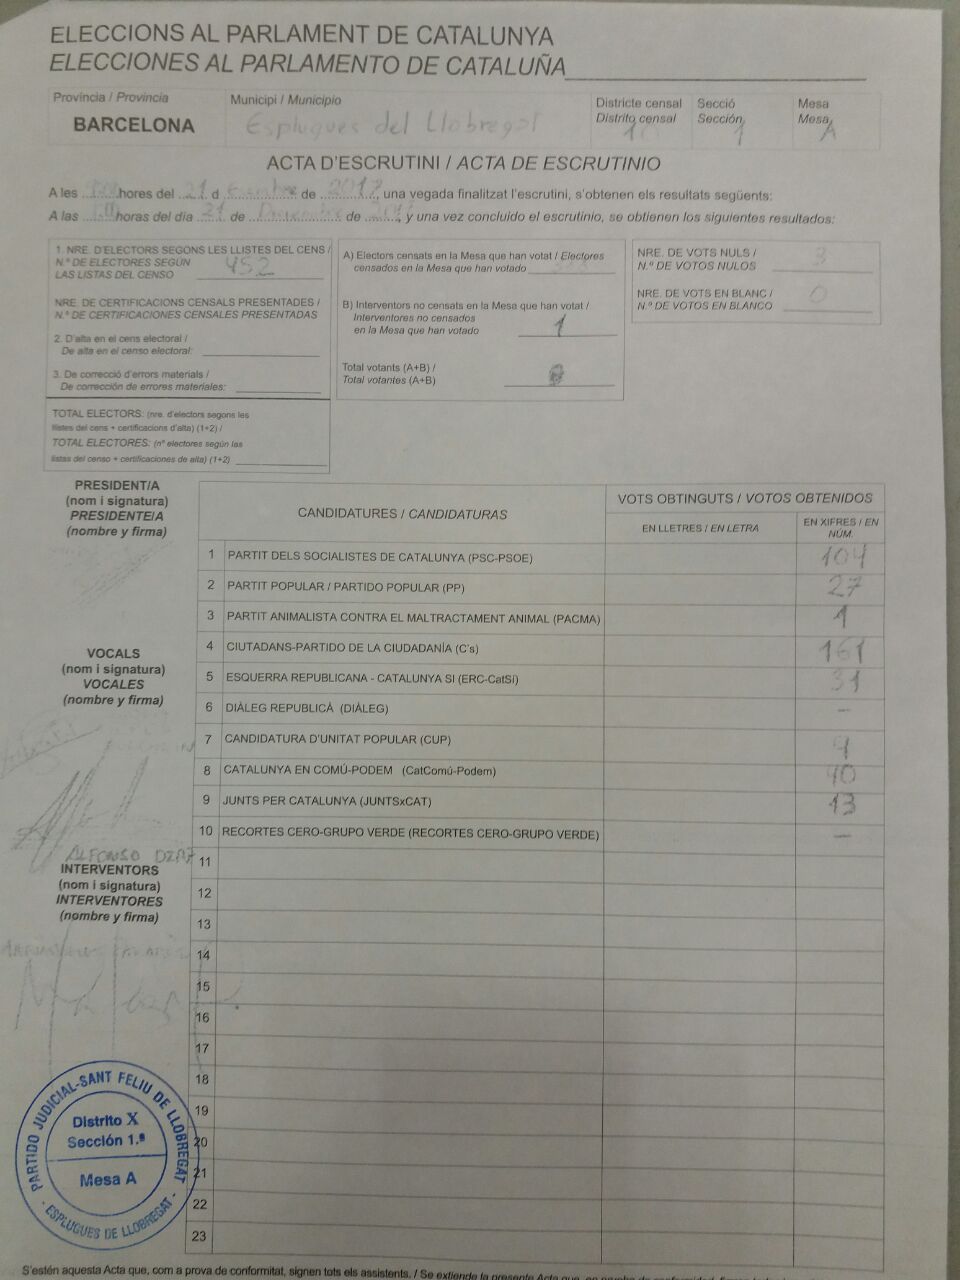 ELECCIONS AL PARLAMENT DE CATALUNYA
ELECCIONES AL PARLAMENTO DE CATALUÑA
Província / Provincia
BARCELONA
Municipi / Municipio
Esplugues del Llobregat
Districte censal
Distrito censal
10
Secció
Sección
1
Mesa
Mesa
A
ACTA D'ESCRUTINI / ACTA DE ESCRUTINIO
A les hores del 21 d de 2017, una vegada finalitzat l'escrutini, s'obtenen els resultats següents:
A las horas del día 21 de Diciembre de y una vez concluido el escrutinio, se obtienen los siguientes resultados:
1. NRE. D'ELECTORS SEGONS LES LLISTES DEL CENS /
N.º DE ELECTORES SEGÚN
LAS LISTAS DEL CENSO 452
NRE. DE CERTIFICACIONS CENSALS PRESENTADES /
N.º DE CERTIFICACIONES CENSALES PRESENTADAS
2. D'alta en el cens electoral /
De alta en el censo electoral:
3. De correcció d'errors materials /
De corrección de errores materiales:
TOTAL ELECTORS: (nre. d'electors segons les
llistes del cens + certificacions d'alta) (1+2) /
TOTAL ELECTORES: (nº electores según las
listas del censo + certificaciones de alta) (1+2)
A) Electors censats en la Mesa que han votat / Electores
censados en la Mesa que han votado
B) Interventors no censats en la Mesa que han votat /
Interventores no censados
en la Mesa que han votado 1
Total votants (A+B) /
Total votantes (A+B)
NRE. DE VOTS NULS /
N.º DE VOTOS NULOS 3
NRE. DE VOTS EN BLANC /
N.º DE VOTOS EN BLANCO 0
PRESIDENT/A
(nom i signatura)
PRESIDENTE/A
(nombre y firma)
VOCALS
(nom i signatura)
VOCALES
(nombre y firma)
ALFONSO
INTERVENTORS
(nom i signatura)
INTERVENTORES
(nombre y firma)
CANDIDATURES / CANDIDATURAS
VOTS OBTINGUTS / VOTOS OBTENIDOS
EN LLETRES / EN LETRA
EN XIFRES / EN
NÚM.
1 PARTIT DELS SOCIALISTES DE CATALUNYA (PSC-PSOE) 104
2 PARTIT POPULAR / PARTIDO POPULAR (PP) 27
3 PARTIT ANIMALISTA CONTRA EL MALTRACTAMENT ANIMAL (PACMA) 1
4 CIUTADANS-PARTIDO DE LA CIUDADANÍA (C's) 161
5 ESQUERRA REPUBLICANA - CATALUNYA SI (ERC-CatSí) 31
6 DIÀLEG REPUBLICÀ (DIÀLEG) -
7 CANDIDATURA D'UNITAT POPULAR (CUP) 9
8 CATALUNYA EN COMÚ-PODEM (CatComú-Podem) 40
9 JUNTS PER CATALUNYA (JUNTSxCAT) 13
10 RECORTES CERO-GRUPO VERDE (RECORTES CERO-GRUPO VERDE) -
11
12
13
14
15
16
17
18
19
20
21
22
23
PARTIDO JUDICIAL-SANT FELIU DE LLOBREGAT
Distrito X
Sección 1.ª
Mesa A
- ESPLUGUES DE LLOBREGAT -
S'estén aquesta Acta que, com a prova de conformitat, signen tots els assistents. / Se extiende la presente Acta que, en prueba de conformidad,